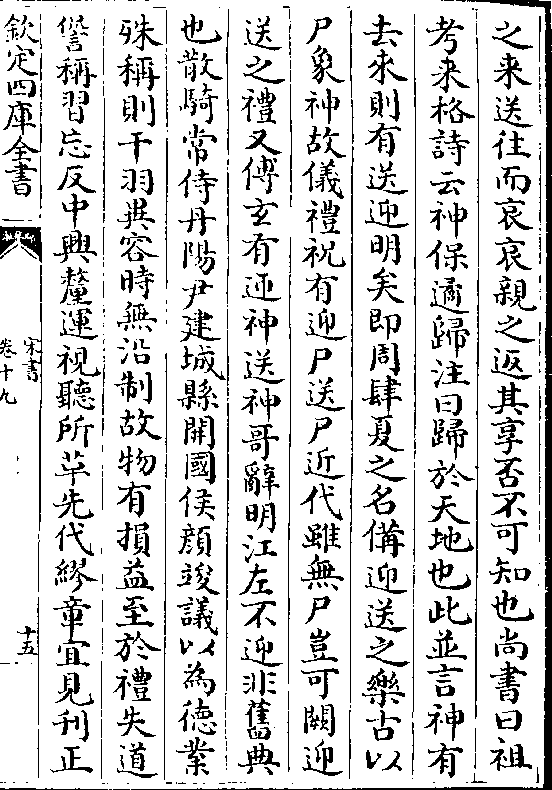 之来送往而哀哀親之返其享否不可知也尚書曰祖
考来格詩云神保遹歸注曰歸於天地也此並言神有
去來則有送迎明矣即周肆夏之名備迎送之樂古以
尸象神故儀禮祝有迎尸送尸近代雖無尸豈可闕迎
送之禮又傅玄有迎神送神哥辭明江左不迎非舊典
也散騎常侍丹陽尹建城縣開國侯顔竣議以為德業
殊稱則干羽異容時無沿制故物有損益至於禮失道
諐稱習忘反中興釐運視聽所革先代繆章宜見刊正
欽定四庫全書
宋書
卷十九
十五